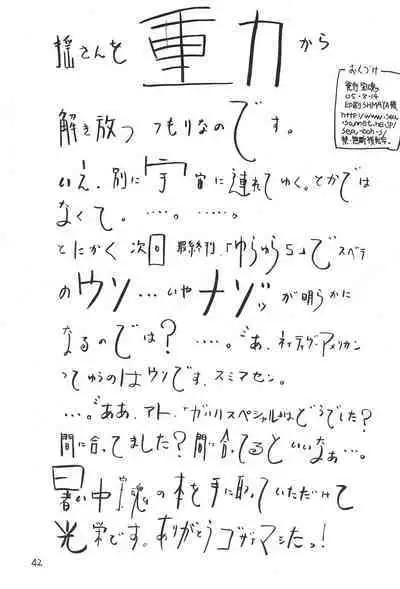 揺さんを重力から
解き放つつもりなのです。
いえ、別に宇宙に連れてゆく。とかでは
なくて。…。……。
とにかく次回最終刊、「ゆらゆら5」でスベテ
のウソ…いやナゾが明らかに
なるのでは?…。あ、ネイティヴ・アメリカン
ってゆうのはウソです。スミマセン。
…。ああ、アト、「ガリリスペシャル」はどうでした?
間に合ってました?間に合ってるといいなぁ…。
暑い中、魂の本を手に取っていただけて
光栄です。ありがとうゴザイマシたっ!
おくづけ
発行
05.8.14
印刷 SHIMAYA様
http://www.sea.
sannet.ne.jp/
42